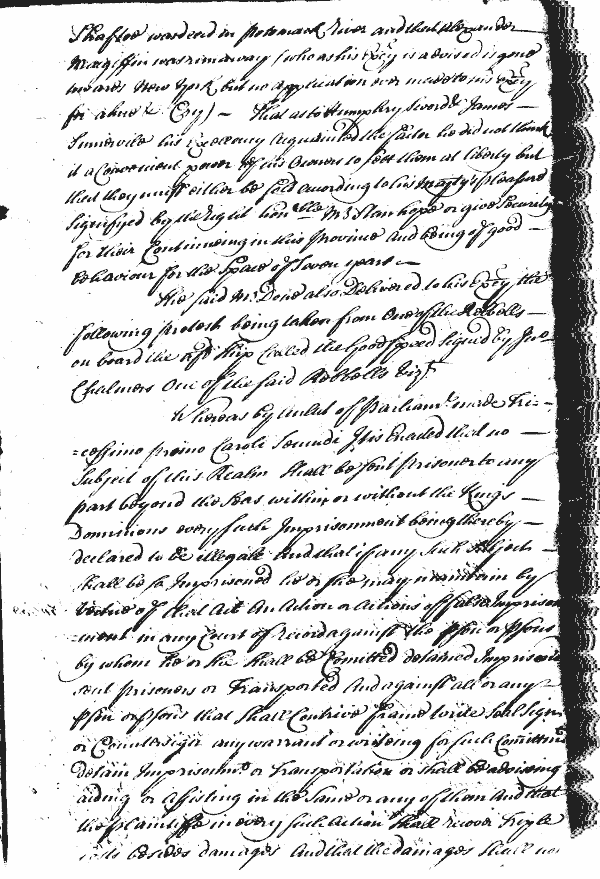 Shaftoe was dead in Potomack River and that Alexander
Magiffin was runaway (who as his Excy is advised is gone
towards New York but no application ever made to his Excy
for a hue & Cry) — That as to Humphry Sword & James —
Sumervile his Excellency Acquainted the Sailor he did not think
it a Convenient power of his Owners to sett them at liberty but
that they must either be sold according to his Majtys pleasure
signifyed by the right honble Mr Stanhope or give Security
for their Continueing in this Province and being of good —
behaviour for the Space of Seven years —
The said Mr Done also Delivered to his Excy the
following protest being taken from One of the Rebells —
on board the afd Ship Called the Good Speed signed by Jno
Chalmers One of the said Rebbells Vizt
Whereas by an Act of Parliamt made Tri=
=cessimo primo Caroli Secundi It is Enacted that no —
Subject of this Realm Shall be sent prisoner to any
part beyond the Seas within or without the Kings —
Dominions every such Imprisonment being thereby —
declared to be illegale And that if any Such Subject —
shall be so Imprisoned he or she may maintain by
Virtue of that Act An Action or Actions of false Imprison
=ment in any Court of record against the pson or psons
by whom he or she shall be Comitted detained Imprisoned
sent prisoners or Transported And against all or any
pson or psons that Shall Contrive frame write Seal Sign
or Countersign any warrant or writeing for such Comittmt
detain Imprisonmt or Transportation or shall be adviseing
aiding or assisting in the Same or any of them And that
the plaintiffe in every such Action Shall recover treple
costs besides damages And that the damages Shall not